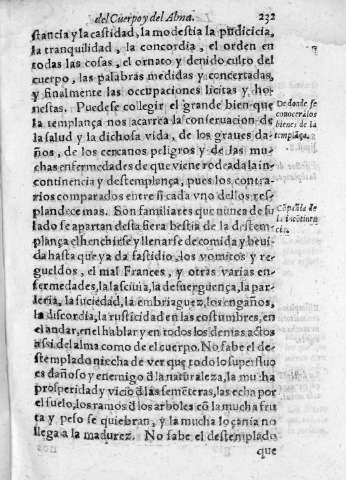 del Cuerpo y del Alma. 232
stancia y la castidad, la modestia la pudicicia,
la tranquilidad, la concordia, el orden en
todas las cosas, el ornato y denido culto del
cuerpo, las palabras medidas y concertadas,
y finalmente las occupaciones licitas y ho-
nestas. Puedese collegir el grande bien que
la templança nos acarrea la conseruacion de
la salud y la dichosa vida, de los graues da-
ños, de los cercanos peligros y de las mu-
chas enfermedades de que viene rodeada la in-
continencia y destemplança, pues los contra-
rios comparados entre si cada vno dellos res-
plandece mas. Son familiares que nunca de su
lado se apartan desta fiera bestia de la destem-
plança el henchirse y llenarse de comida y beui-
da hasta que ya da fastidio, los vomitos y re-
gueldos, el mal Frances, y otras varias en-
fermedades, la lasciuia, la desuerguença, la par-
leria, la suciedad, la embriaguez, los engaños,
la discordia, la rusticidad en las costumbres, en
el andar, en el hablar y en todos los demas actos
assi del alma como de el cuerpo. No sabe el de-
stemplado ni echa de ver que todo lo superfluo
es dañoso y enemigo d̃ la naturaleza, la mucha
prosperidad y vicio d̃ las semẽteras, las echa por
el suelo, los ramos d̃ los arboles cõ la mucha fru
ta y peso se quiebran, y la mucha loçania no
llega a la madurez. No sabe el destemplado
que
De donde se
conocera los
bienes de la
templãça.
Cõpañia de
la incõtinen
cia.